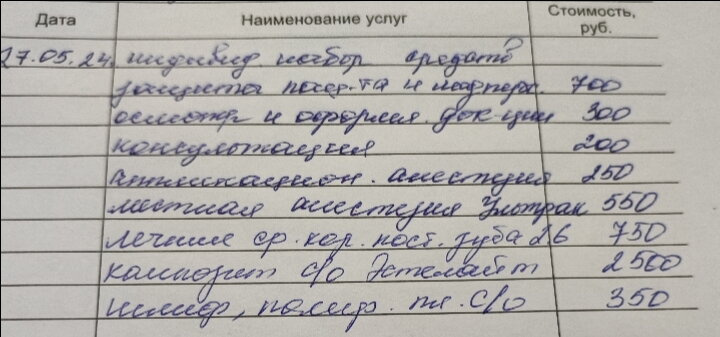 Дата Наименование услуг Стоимость, руб.
27.05.24. индивид набор средств
защиты пац-та и медперс. 700
осмотр и оформл. док-ции 300
консультация 200
аппликацион. анестезия 250
местная анестезия Ультрак 550
лечение ср. кар. пост. зуба 2.6 750
композит с/о Эстелайт 2500
шлиф, полир. пл. с/о 350